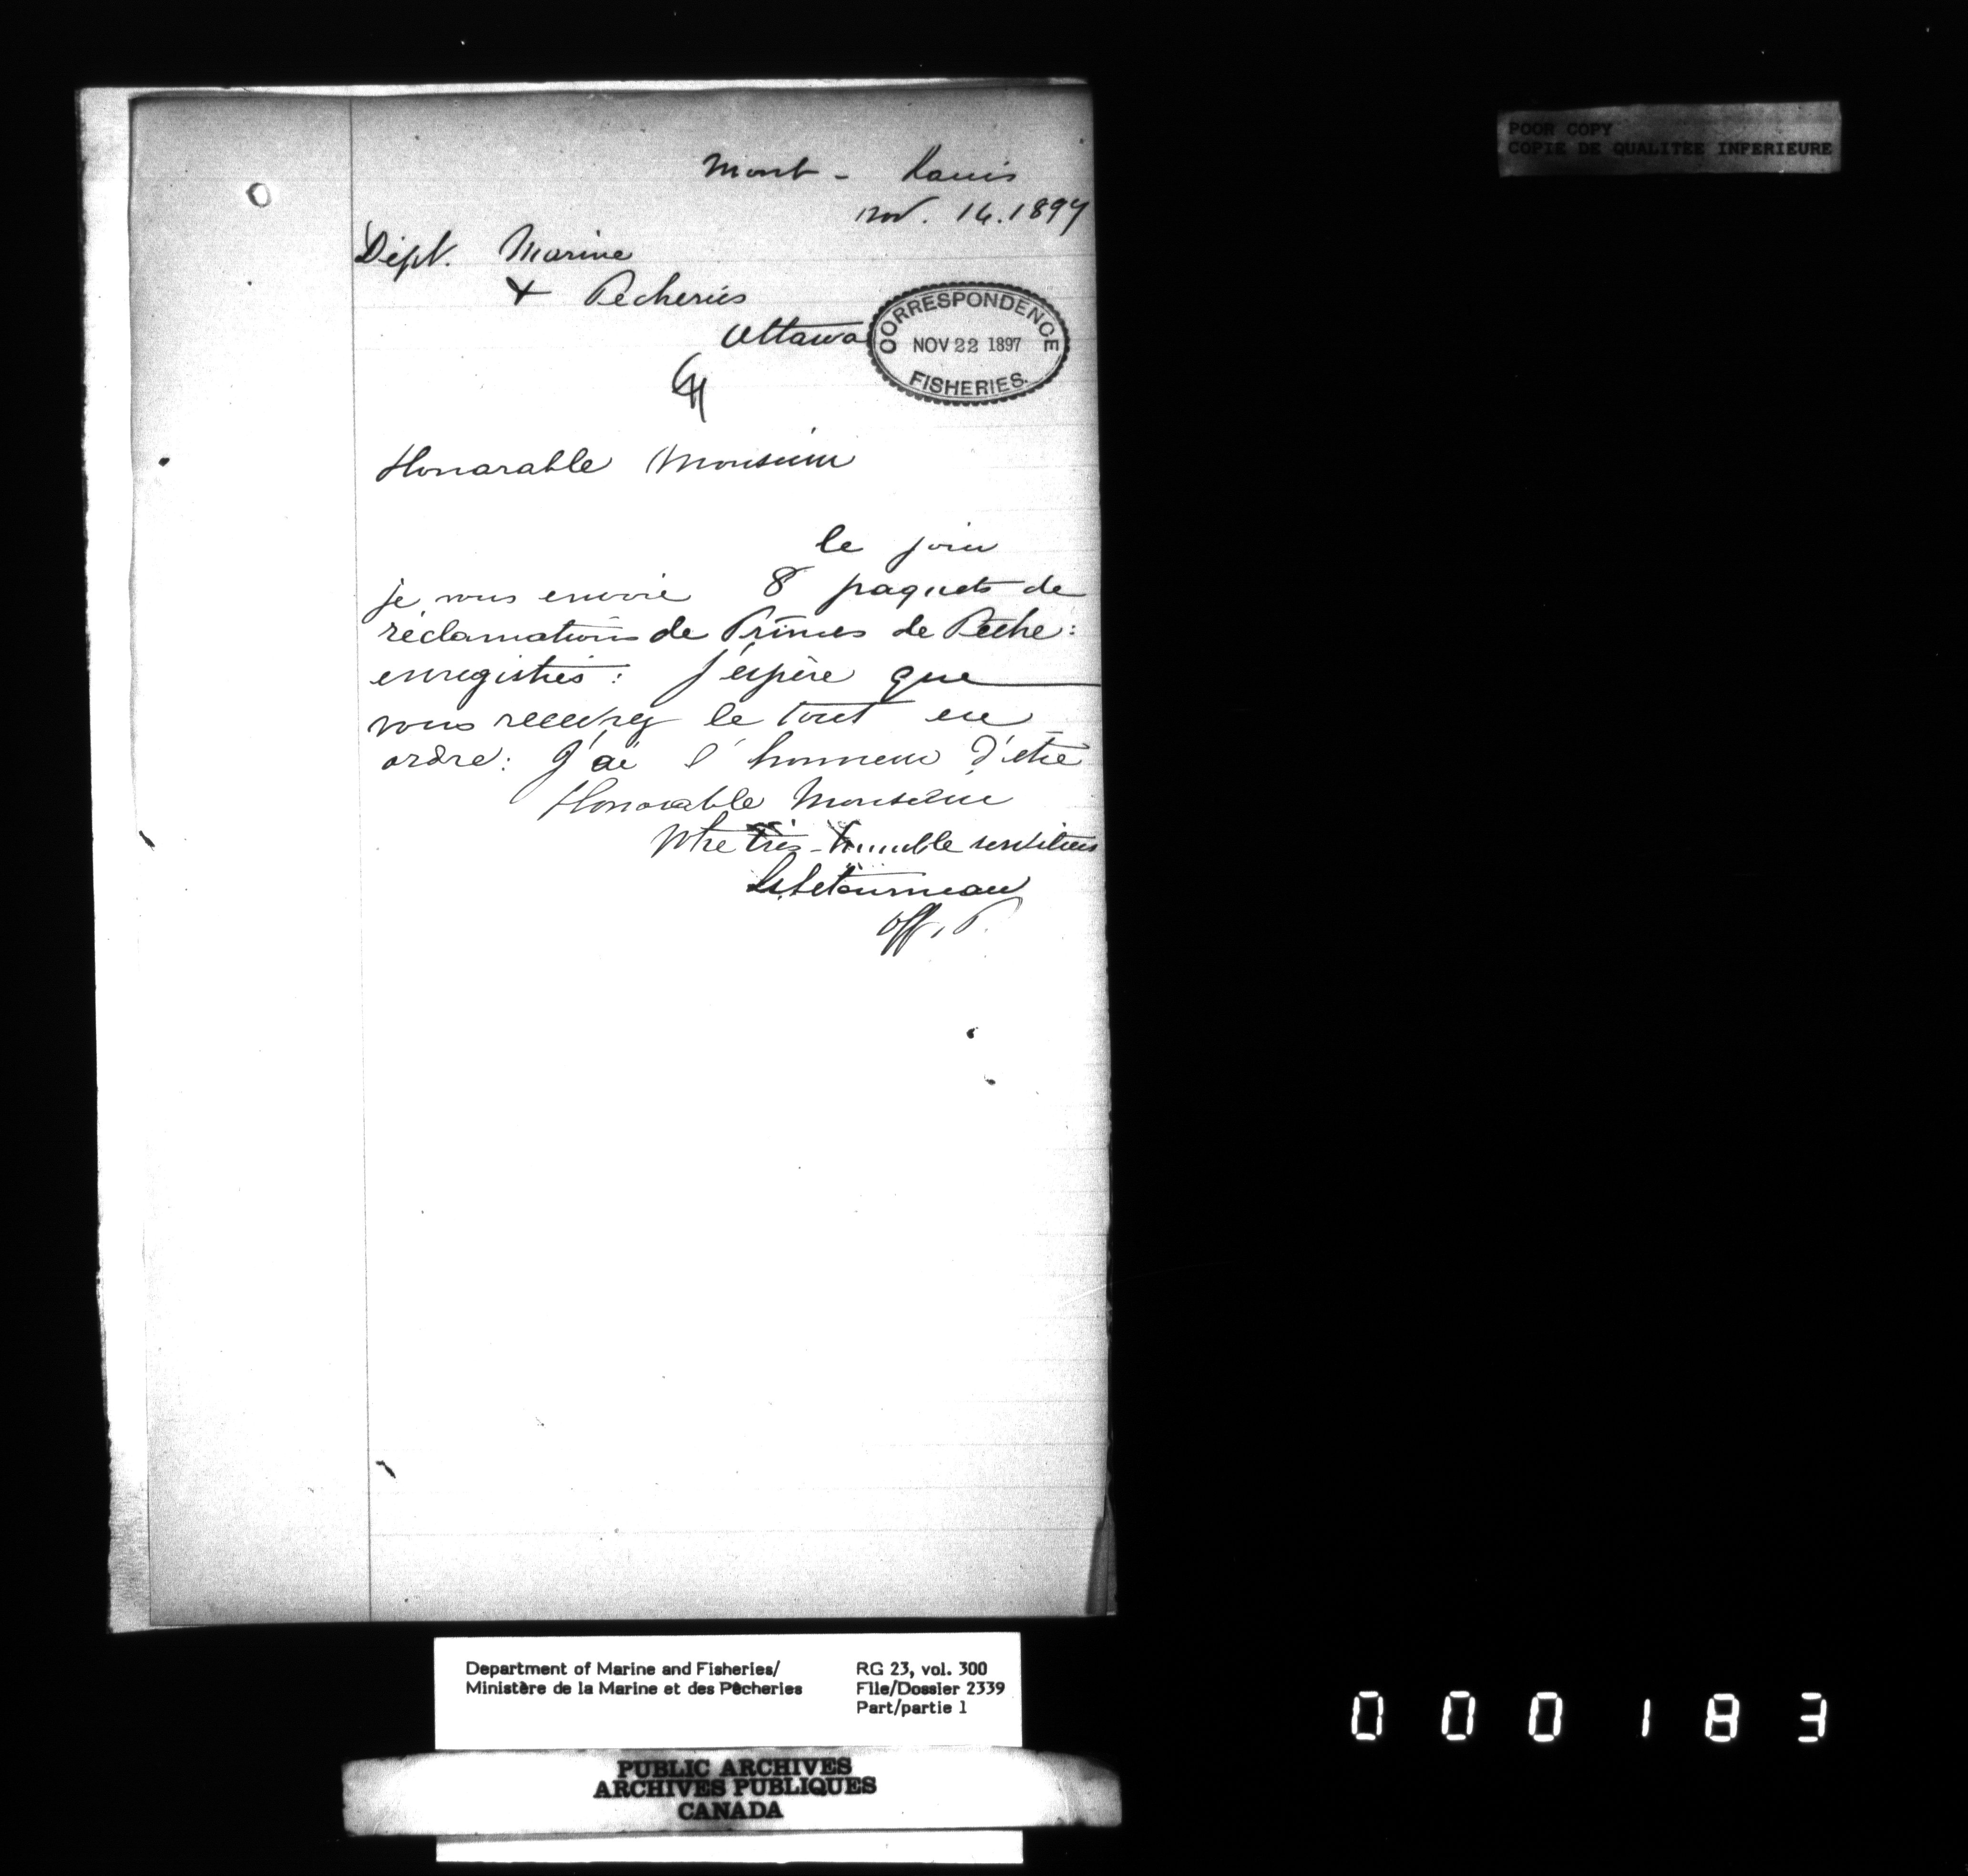 Mont - Louis
nov. 16. 1897
Dépt. Marine
& Pecheries
Ottawa
CORRESPONDENCE
NOV 22 1897
FISHERIES.
Honorable Monsieur
le jour
je vous envoie 8 paquets de
réclamations de Primes de Pêche:
enregistrés: J'espère que
vous recevrez le tout en
ordre: J'ai l'honneur d'être
Honorable Monsieur
Votre très-humble serviteur
Ls. Letourneau
Off. P.
POOR COPY
COPIE DE QUALITEE INFERIEURE
Department of Marine and Fisheries/
Ministère de la Marine et des Pêcheries
RG 23, vol. 300
File/Dossier 2339
Part/partie 1
PUBLIC ARCHIVES
ARCHIVES PUBLIQUES
CANADA
000183